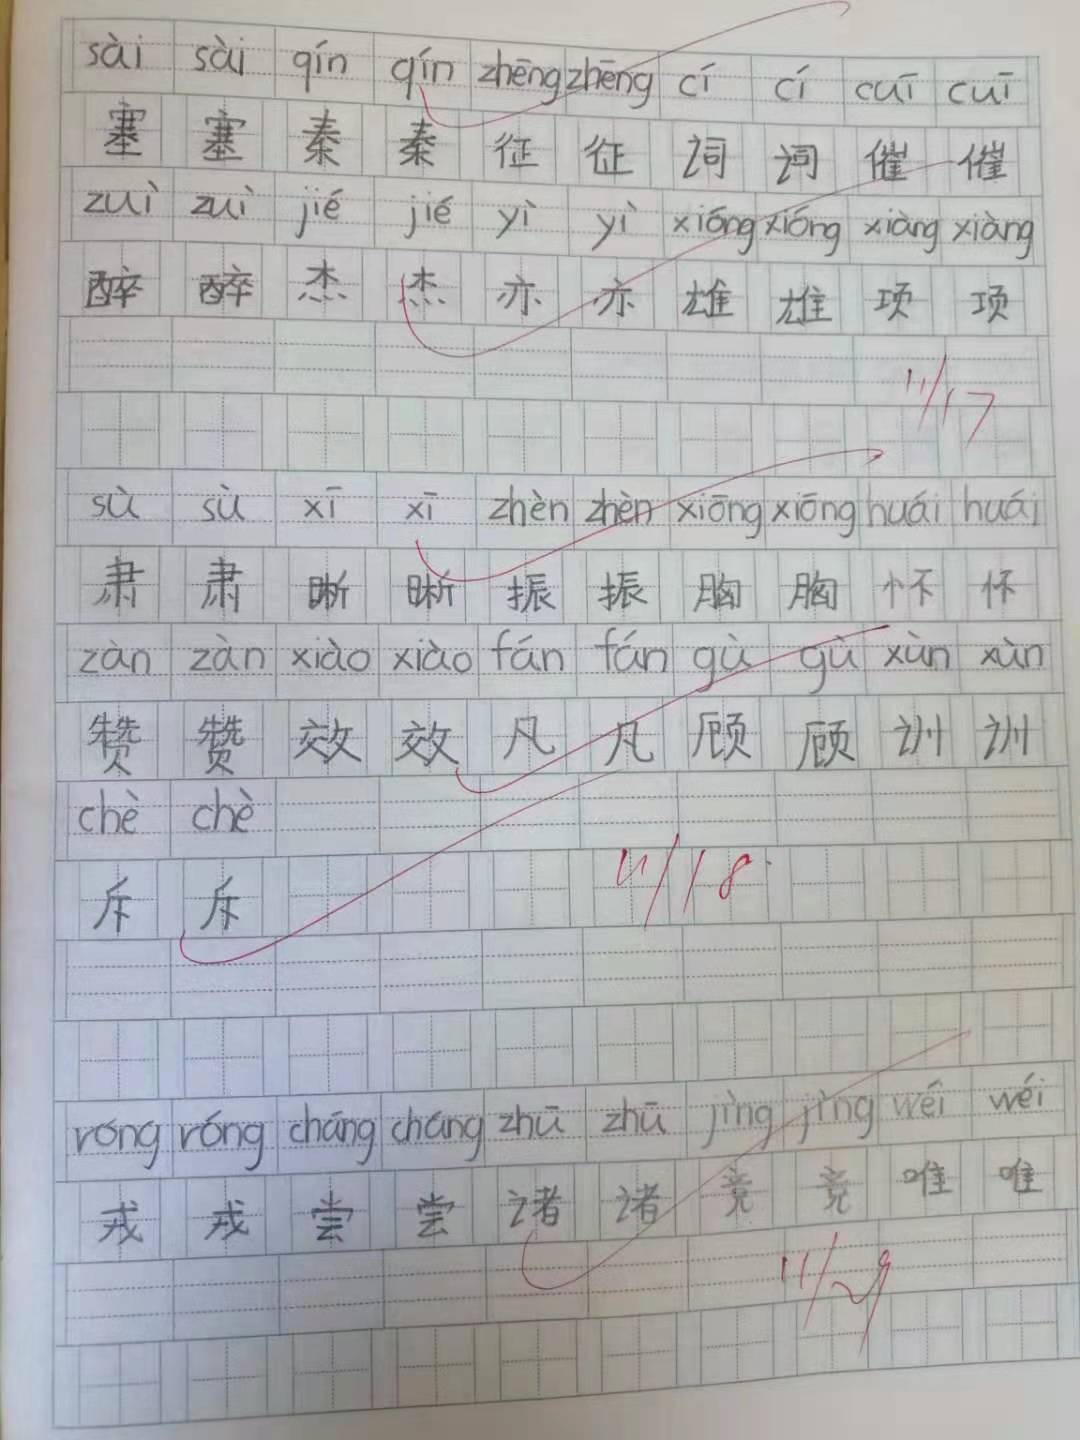 sài sài qín qín zhēng zhēng cí cí cuī cuī
塞 塞 秦 秦 征 征 词 词 催 催
zuì zuì jié jié yì yì xióng xióng xiàng xiàng
醉 醉 杰 杰 亦 亦 雄 雄 项 项
11/17
sù sù xī xī zhèn zhèn xiōng xiōng huái huái
肃 肃 晰 晰 振 振 胸 胸 怀 怀
zàn zàn xiào xiào fán fán gù gù xùn xùn
赞 赞 效 效 凡 凡 顾 顾 训 训
chè chè
斥 斥
11/18
róng róng cháng cháng zhū zhū jìng jìng wéi wéi
戎 戎 尝 尝 诸 诸 竞 竞 唯 唯
11/29